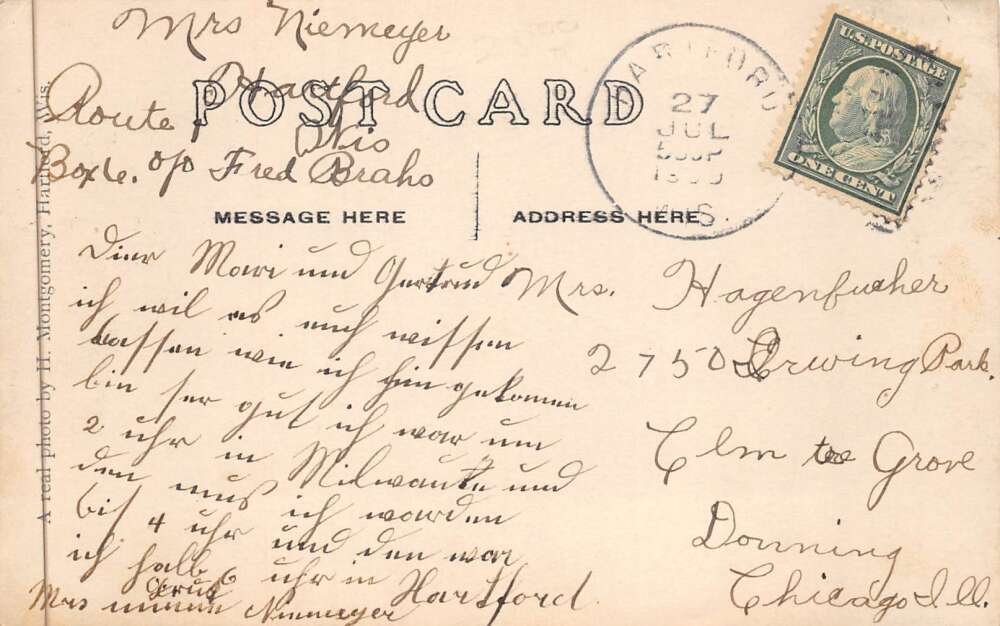 Mrs Niemeyer
Hartford
Route 1
Wis
Box 6. o/o Fred Braho
POST CARD
HARTFORD
27
JUL
WIS.
U.S. POSTAGE
ONE CENT
MESSAGE HERE
ADDRESS HERE
A real photo by H. Montgomery, Hartford, Wis.
Dier Mari und Gertrud
ich wil es euch wissen
lassen wie ich hin gekomen
bin ser gut ich war um
2 uhr in Milwauke und
den muß ich warden
bis 4 uhr und den war
ich halb 6 uhr in Hartford.
Gruß
Mrs Niemeyer
Mrs. Hagenbucher
2750 Erwing Park.
Elm Grove
Downing
Chicago Ill.